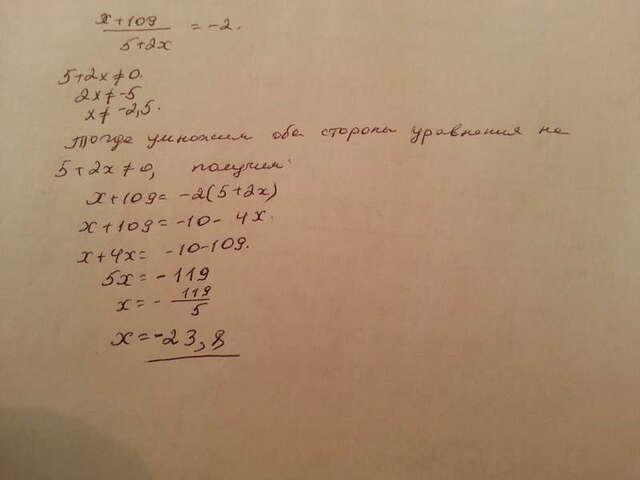 x+109
5+2x = -2.
5+2x≠0.
2x≠-5
x≠-2,5.
Тогда умножим оба стороны уравнения на
5+2x≠0, получим:
x+109= -2(5+2x)
x+109= -10- 4x.
x+4x= -10-109.
5x= -119
x= - 119/5
x= -23,8